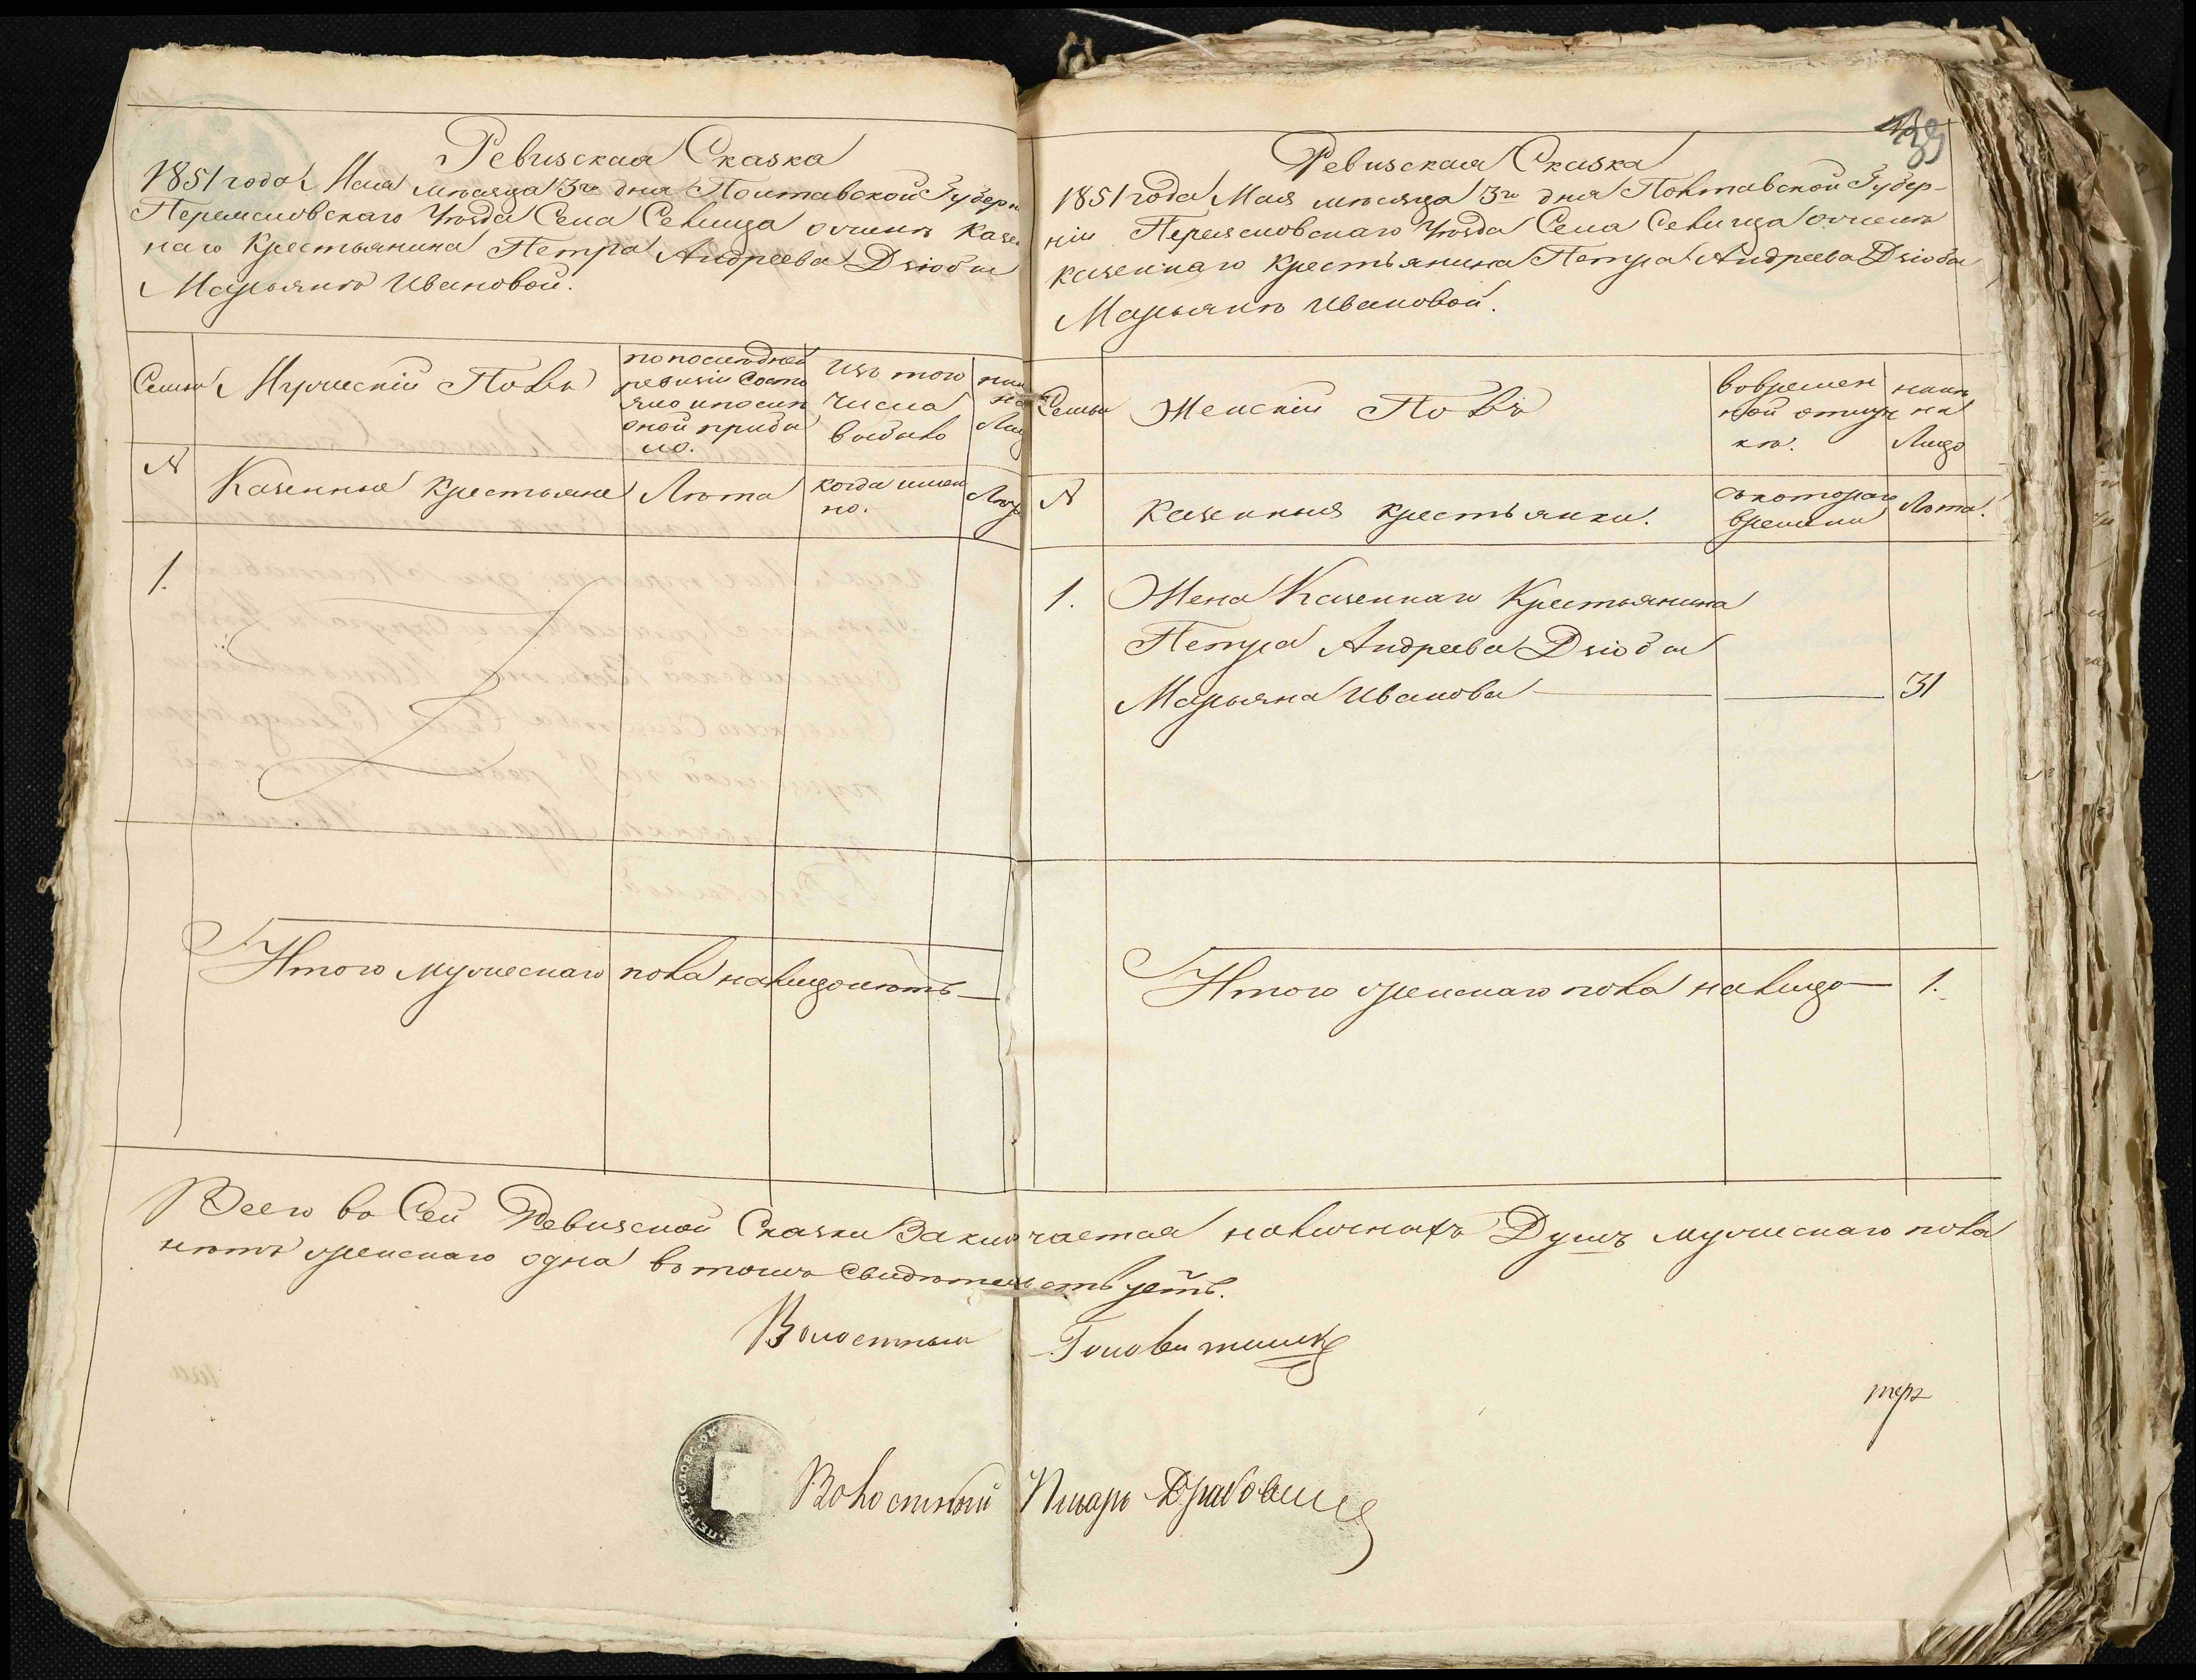 Ревизская Сказка
1851 года Мая месяца 3го дня Полтавской Губерн
Переясловскаго Уѣзда Села Селища о женѣ Казен
наго Крестьянина Петра Андреева Дзюбы
Марьянѣ Ивановой.
Семьи
Мужескій Полъ
по последней
ревизіи состо
яло и после
оной прибы
ло.
Изъ того
числа
выбыло
ны
на
Лиц
№
Казенные Крестьяне
Лѣта
когда имен
но.
Лѣт
1.
Итого мужескаго пола на лицо нѣтъ
39
Ревизская Сказка
1851 года Мая месяца 3го дня Полтавской Губер-
ніи Переясловскаго Уѣзда Села Селища о женѣ
казеннаго Крестьянина Петра Андреева Дзюбы
Марьянѣ Ивановой.
Семьи
Женскій Полъ
во времен
ной отлуч
кѣ.
нынѣ
на
Лицо
№
Казенныя крестьянки.
съ котораго
времени
Лѣта.
1.
Жена Казеннаго Крестьянина
Петра Андреева Дзюбы
Марьяна Иванова 31
Итого женскаго пола на лицо 1.
Всего во Сей Ревизской Сказки Заключается наличныхъ Душъ мужескаго пола
нѣтъ женскаго одна въ томъ свидѣтельствуетъ.
Волостный Голова
Волостный Писарь